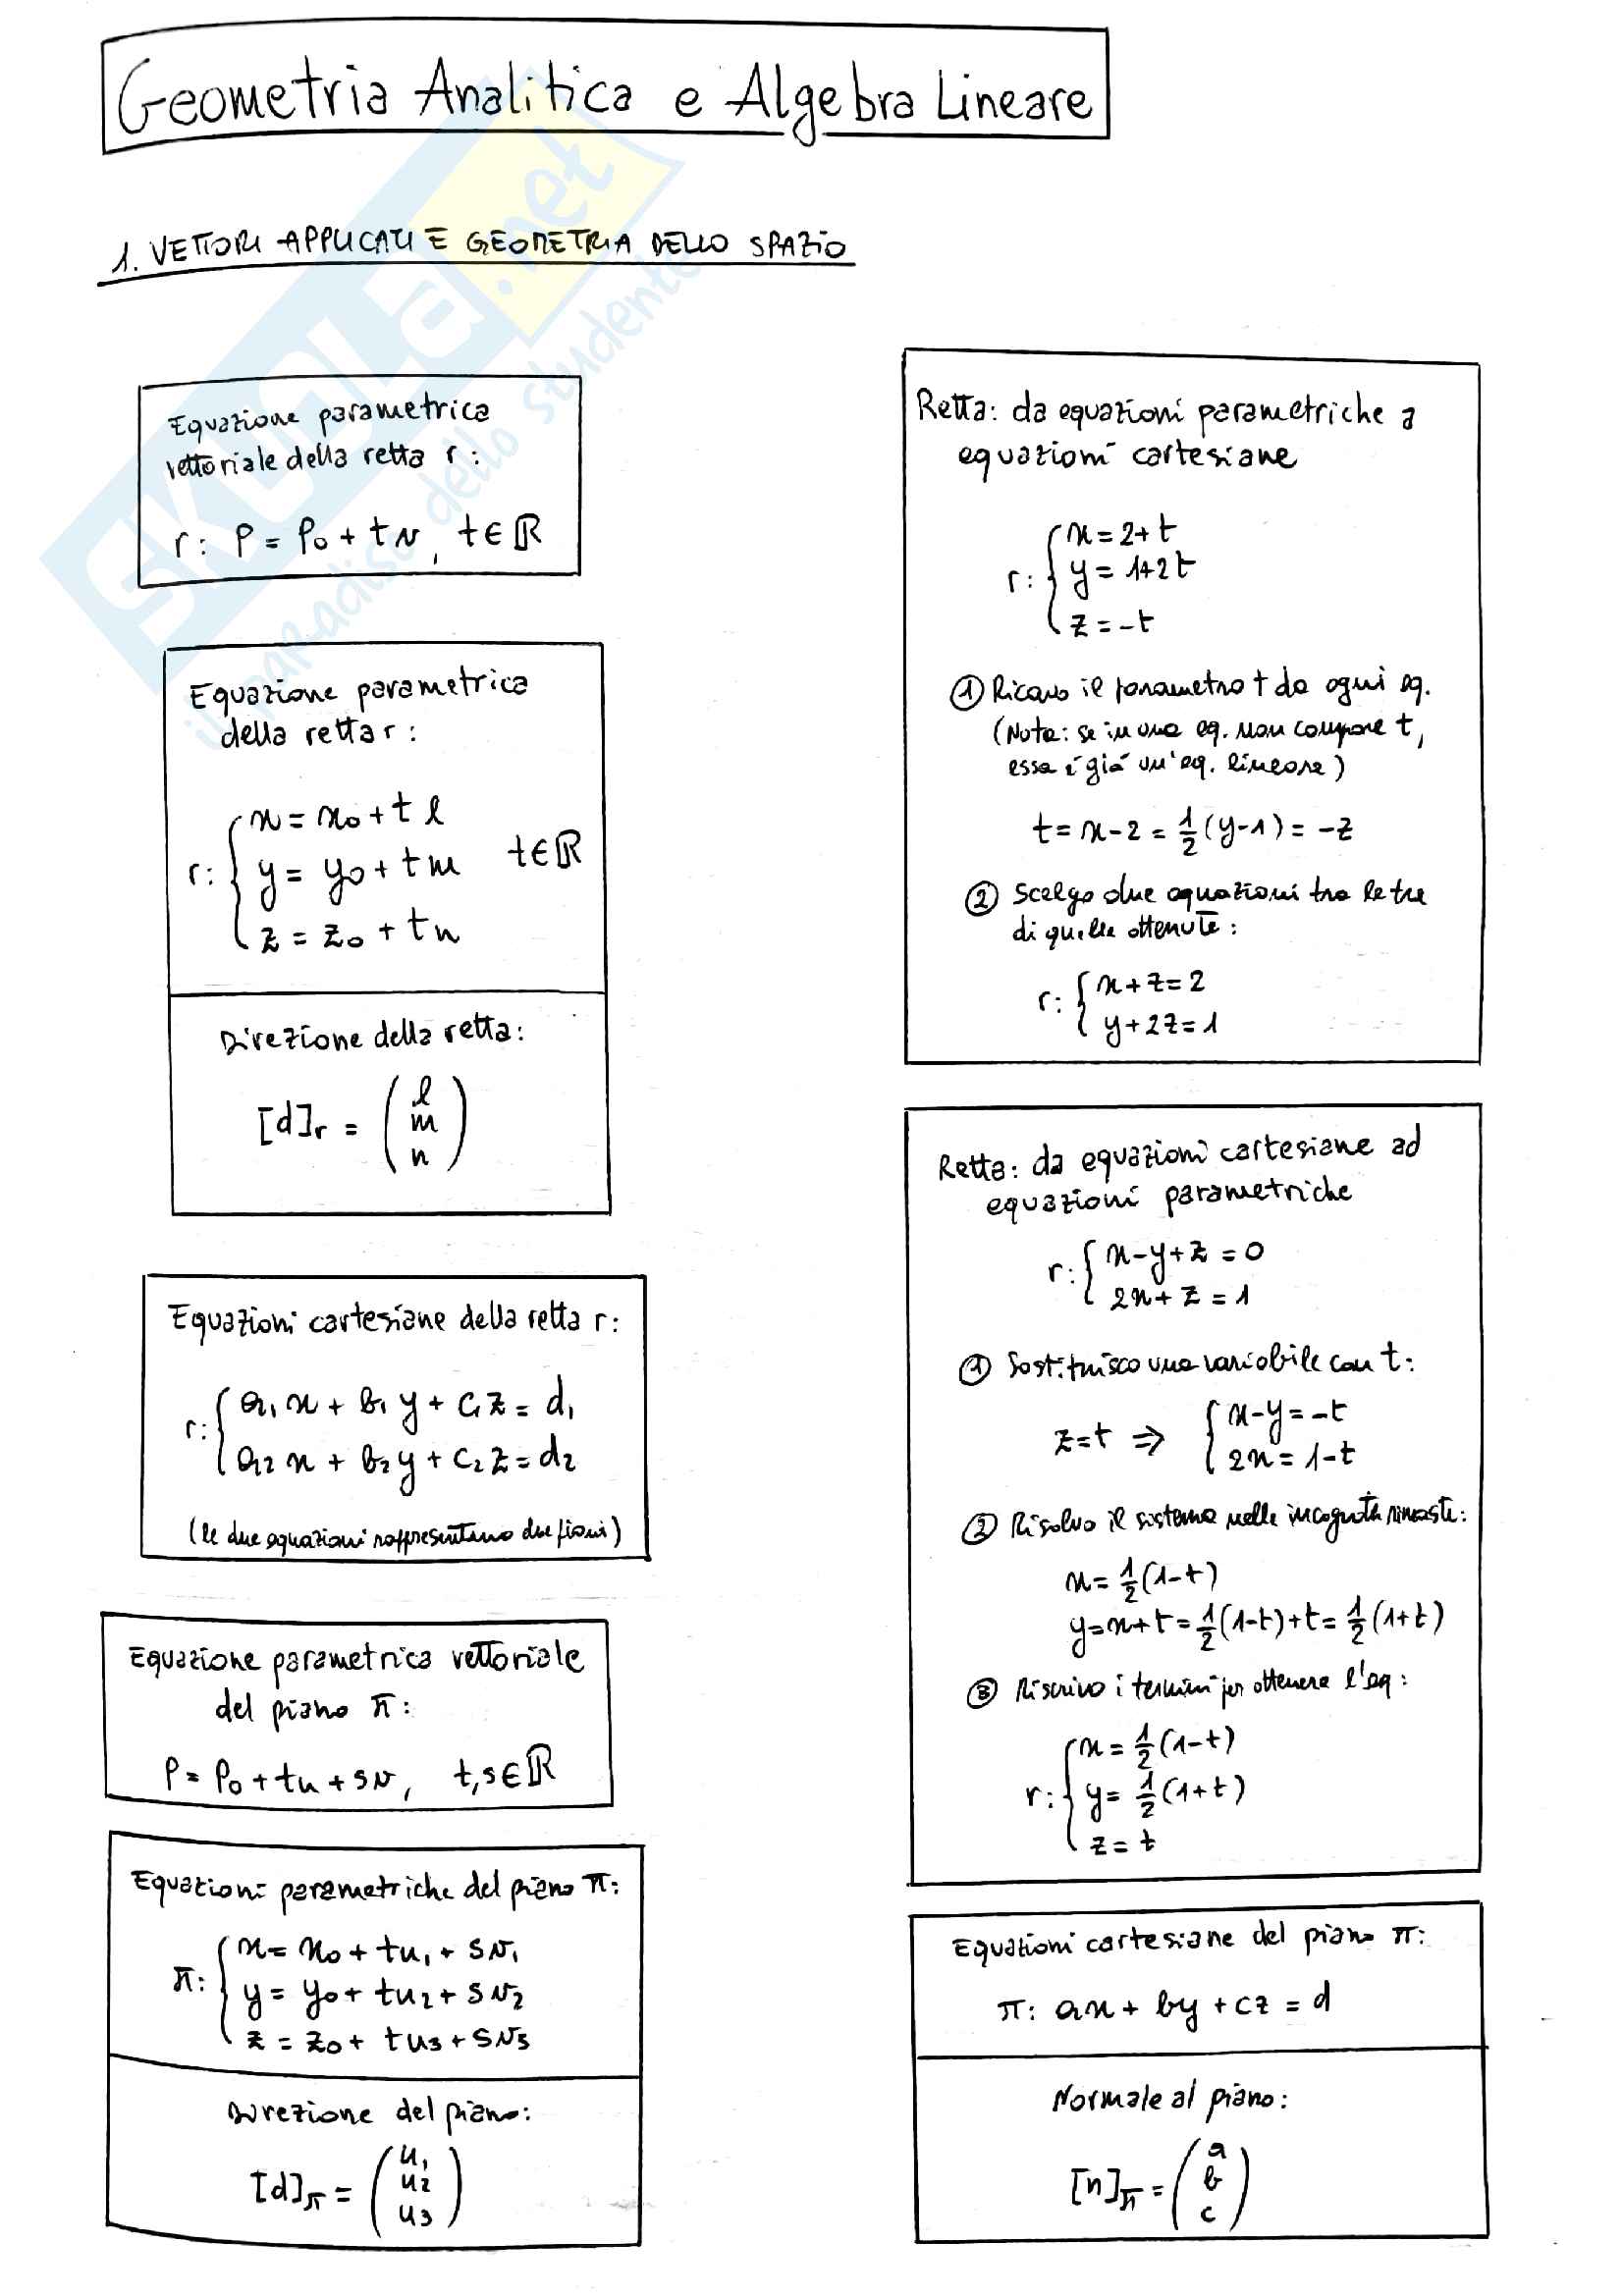 Geometria Analitica e Algebra Lineare
1. VETTORI APPLICATI E GEOMETRIA DELLO SPAZIO
SKUOLA.net
il paradiso dello studente
Equazione parametrica
vettoriale della retta r:
r: P = P₀ + tv, t∈ℝ
Equazione parametrica
della retta r:
r: { x = x₀ + t l
y = y₀ + t m t∈ℝ
z = z₀ + t n
Direzione della retta:
[d]r = ( l
m
n )
Equazioni cartesiane della retta r:
r: { a₁x + b₁y + c₁z = d₁
a₂x + b₂y + c₂z = d₂
(le due equazioni rappresentano due piani)
Equazione parametrica vettoriale
del piano π:
P = P₀ + tu + sv, t,s∈ℝ
Equazioni parametriche del piano π:
π: { x = x₀ + tu₁ + sv₁
y = y₀ + tu₂ + sv₂
z = z₀ + tu₃ + sv₃
Direzione del piano:
[d]π = ( u₁
u₂
u₃ )
Retta: da equazioni parametriche a
equazioni cartesiane
r: { x = 2+t
y = 1+2t
z = -t
① Ricavo il parametro t da ogni eq.
(Nota: se in una eq. non compare t,
essa è già un'eq. lineare)
t = x-2 = 1/2 (y-1) = -z
② Scelgo due equazioni tra le tre
di quelle ottenute:
r: { x+z=2
y+2z=1
Retta: da equazioni cartesiane ad
equazioni parametriche
r: { x-y+z = 0
2x+z = 1
① Sostituisco una variabile con t:
z=t ⇒ { x-y = -t
2x = 1-t
② Risolvo il sistema nelle incognite rimaste:
x = 1/2 (1-t)
y = x+t = 1/2 (1-t)+t = 1/2 (1+t)
③ Riscrivo i termini per ottenere l'eq:
r: { x = 1/2 (1-t)
y = 1/2 (1+t)
z = t
Equazioni cartesiane del piano π:
π: ax + by + cz = d
Normale al piano:
[n]π = ( a
b
c )